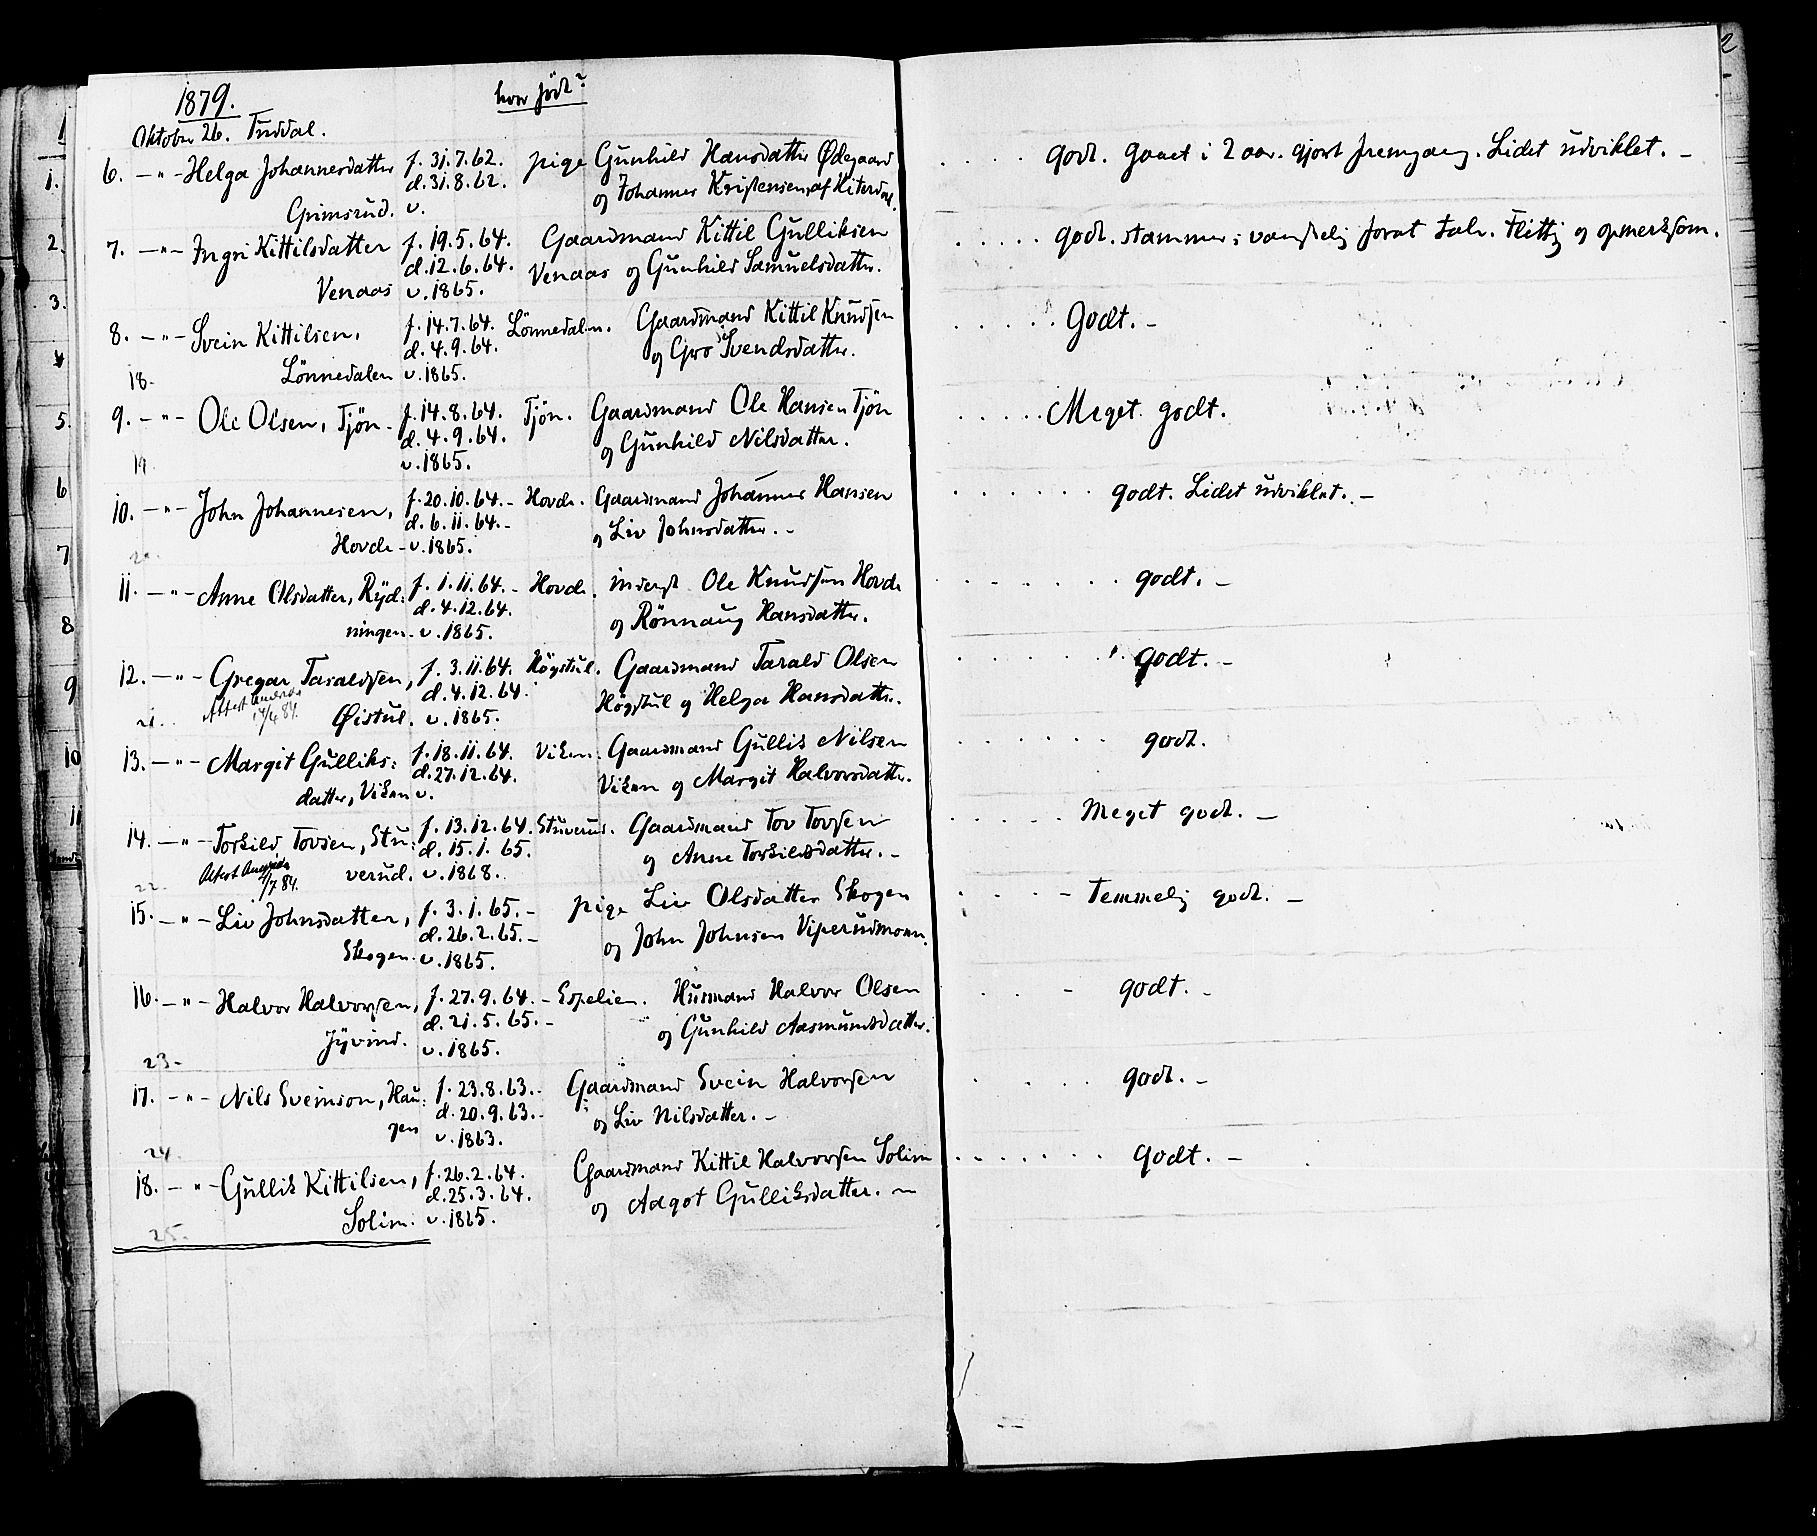 1879.
hvor födt?
Oktober 26. Tuddal.
6. – " – Helga Johannesdatter f. 31.7.62. pige Gunhild Hansdatter Ødegaard . . . . godt. Gaaet i 2 aar. Gjort fremgang. Lidet udviklet. –
1. d. 31.8.62. og Johannes Kristensen af Hiterdal.
Grimsrud. v.
2. 7. – " – Ingri Kittilsdatter f. 19.5.64. Gaardmand Kittil Gulliksen . . . . . godt. stammer; vanskelig forat tale. Flittig og opmerksom.
d. 12.6.64. Venaas og Gunhild Samuelsdatter.
Venaas v. 1865.
3. 8. – " – Svein Kittilsen, f. 14.7.64. Lönnedalen. Gaardmand Kittil Knudsen . . . . . Godt. –
4 d. 4.9.64. og Gro Svendsdatter.
18. Lönnedalen v. 1865.
5. 9. – " – Ole Olsen, Tjön – f. 14.8.64. Tjön. Gaardmand Ole Hansen Tjön . . . . . Meget godt.
d. 4.9.64. og Gunhild Nilsdatter.
19. v. 1865.
6 10. – " – John Johannesen, f. 20.10.64. – Hovde. Gaardmand Johannes Hansen . . . . . . godt. Lidet udviklet. –
d. 6.11.64. – og Liv Johnsdatter. –
7 20. Hovde – v. 1865.
11. – " – Anne Olsdatter, Ryd: f. 1.11.64. – Hovde. inderst Ole Knudsen Hovde . . . . . . godt. –
d. 4.12.64. og Rönnaug Hansdatter.
8 ningen. v. 1865.
12. – " – Gregar Taraldsen, f. 3.11.64. Högstul. Gaardmand Tarald Olsen . . . . . . godt. –
9 Attest d. 4.12.64. Högstul og Helga Hansdatter.
21. 84. Øistul. v. 1865.
10 13. – " – Margit Gulliks: f. 18.11.64. Viken. Gaardmand Gullik Nilsen . . . . . . godt.
d. 27.12.64. Viken og Margit Halvorsdatter.
datter, Viken v.
11 14. – " – Torkild Tovsen, Stu: f. 13.12.64. Stuverud. Gaardmand Tov Tovsen . . . . . Meget godt. –
Attest d. 15.1.65. og Anne Torkildsdatter. –
22. /7 84. verud. v. 1868.
15. – " – Liv Johnsdatter, f. 3.1.65. – pige Liv Olsdatter Skogen . . . – Temmelig godt. –
d. 26.2.65. – og John Johnsen Viperudmoen.
Skogen. v. 1865.
16. – " – Halvor Halvorsen, f. 27.9.64. – Espelien. Husmand Halvor Olsen . . – godt. –
d. 21.5.65. – og Gunhild Aasmundsdatter.
Jyvind. v. 1865.
23.
17. – " – Nils Sveinson, Hau: f. 23.8.63. – Gaardmand Svein Halvorsen . . . . godt. –
d. 20.9.63. – og Liv Nilsdatter. –
gen v. 1863.
24.
18. – " – Gullik Kittilsen, f. 26.2.64. Gaardmand Kittil Halvorsen Solim . . . . . . . godt. –
d. 25.3.64. og Aagot Gulliksdatter. –
25. Solim. v. 1865.